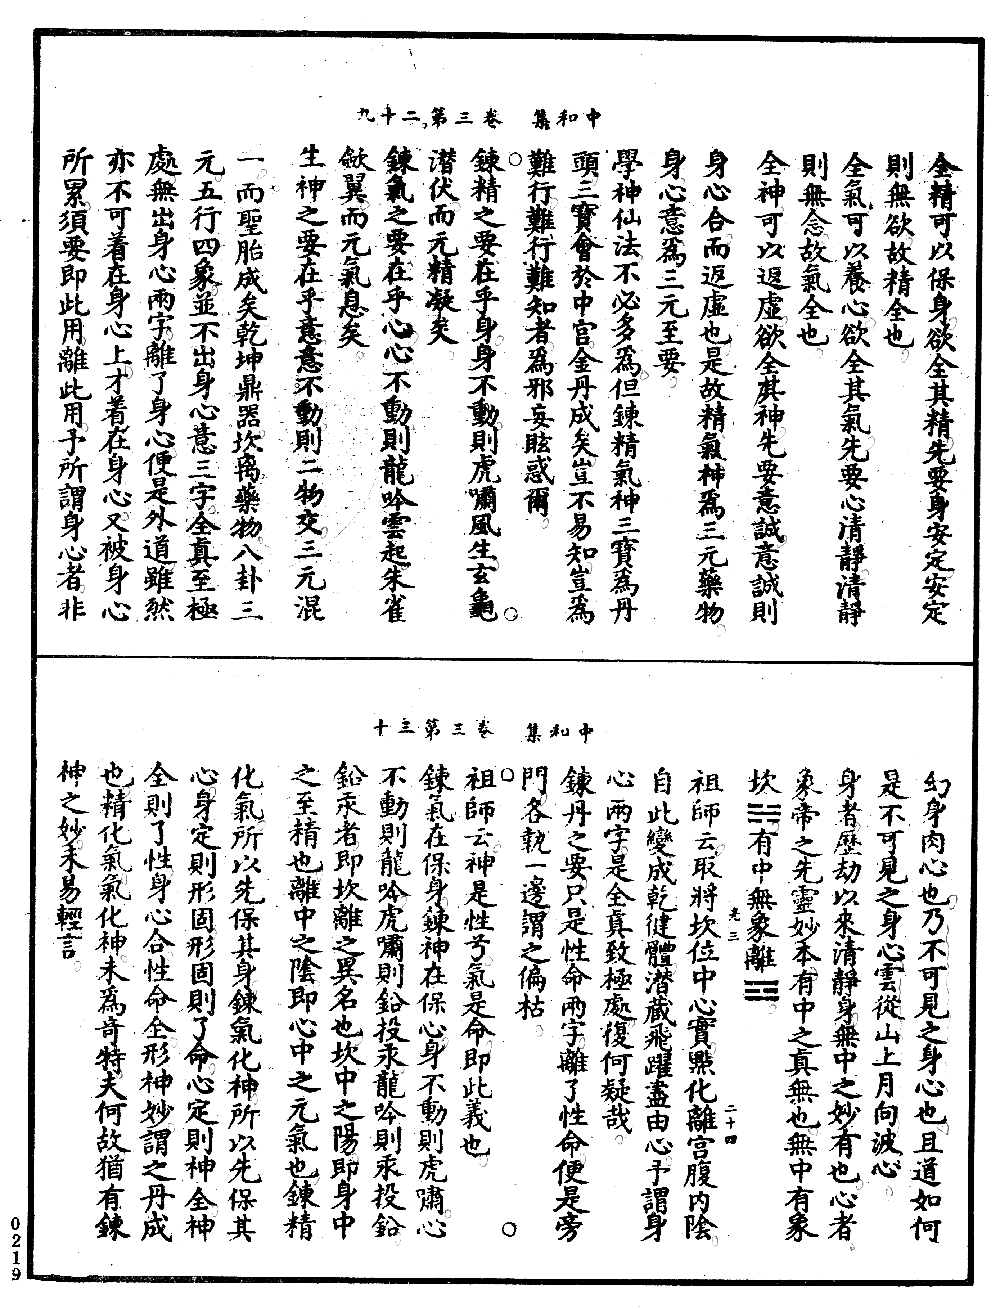 中和集　卷三第二十九
全精可以保身欲全其精先要身安定安定
則無欲故精全也
全氣可以養心欲全其氣先要心清靜清靜
則無念故氣全也
全神可以返虛欲全其神先要意誠意誠則
身心合而返虛也是故精氣神爲三元藥物
身心意爲三元至要
學神仙法不必多爲但鍊精氣神三寶爲丹
頭三寶會於中宮金丹成矣豈不易知豈爲
難行難行難知者爲邪妄眩惑爾
鍊精之要在乎身身不動則虎嘯風生玄龜
潛伏而元精凝矣
鍊氣之要在乎心心不動則龍吟雲起朱雀
歛翼而元氣息矣
生神之要在乎意意不動則二物交三元混
一而聖胎成矣乾坤鼎器坎离藥物八卦三
元五行四象並不出身心意三字全真至極
處無出身心兩字離了身心便是外道雖然
亦不可着在身心上才着在身心又被身心
所累須要即此用離此用予所謂身心者非
中和集　卷三第三十
幻身肉心也乃不可見之身心也且道如何
是不可見之身心雲從山上月向波心
身者歷劫以來清靜身無中之妙有也心者
象帝之先靈妙本有中之真無也無中有象
坎☵有中無象離☲
光三　二十四
祖師云取將坎位中心實點化離宮腹內陰
自此變成乾健體潛藏飛躍盡由心予謂身
心兩字是全真致極處復何疑哉
鍊丹之要只是性命兩字離了性命便是旁
門各執一邊謂之偏枯
祖師云神是性兮氣是命即此義也
鍊氣在保身鍊神在保心身不動則虎嘯心
不動則龍吟虎嘯則鉛投汞龍吟則汞投鉛
鉛汞者即坎離之異名也坎中之陽即身中
之至精也離中之陰即心中之元氣也鍊精
化氣所以先保其身鍊氣化神所以先保其
心身定則形固形固則了命心定則神全神
全則了性身心合性命全形神妙謂之丹成
也精化氣氣化神未爲奇特夫何故猶有鍊
神之妙未易輕言
0219